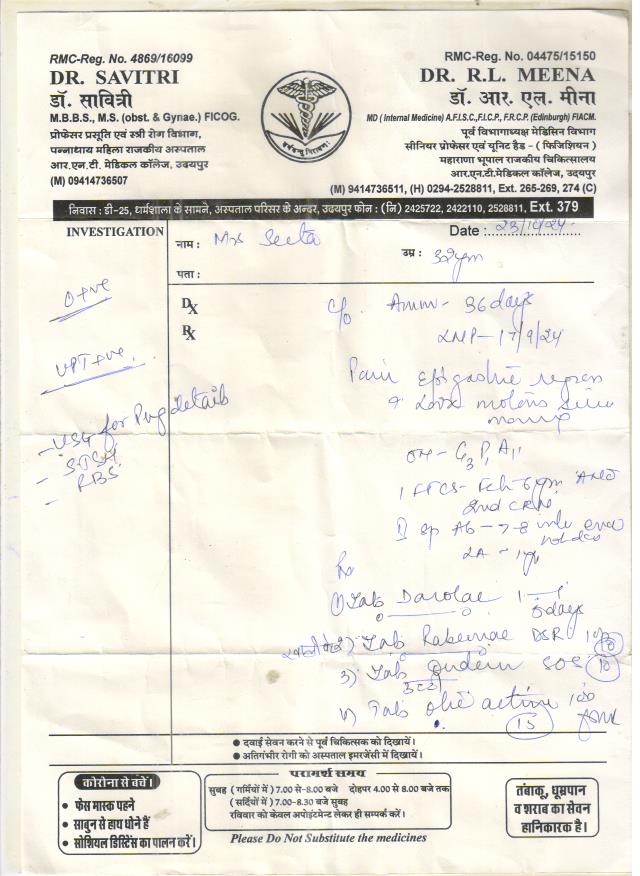 RMC-Reg. No. 4869/16099
DR. SAVITRI
डॉ. सावित्री
M.B.B.S., M.S. (obst. & Gynae.) FICOG.
प्रोफेसर प्रसूति एवं स्त्री रोग विभाग,
पन्नाधाय महिला राजकीय अस्पताल
आर.एन.टी. मेडिकल कॉलेज, उदयपुर
(M) 09414736507
RMC-Reg. No. 04475/15150
DR. R.L. MEENA
डॉ. आर. एल. मीना
MD ( Internal Medicine) A.F.I.S.C.,F.I.C.P., F.R.C.P. (Edinburgh) FIACM.
पूर्व विभागाध्यक्ष मेडिसिन विभाग
सीनियर प्रोफेसर एवं यूनिट हैड - ( फिजिशियन )
महाराणा भूपाल राजकीय चिकित्सालय
आर.एन.टी.मेडिकल कॉलेज, उदयपुर
(M) 9414736511, (H) 0294-2528811, Ext. 265-269, 274 (C)
निवास : डी-25, धर्मशाला के सामने, अस्पताल परिसर के अन्दर, उदयपुर फोन : (नि) 2425722, 2422110, 2528811, Ext. 379
INVESTIGATION
नाम : Mrs Seeta
Date : 23/10/24
उम्र : 32yrs
पता :
O+ve
UPT+ve
- USG for Preg details
- S.TSH
- RBS
DX
RX
c/o Amm - 36days
LMP-17/9/24
Pain Epigastric region
& Loose motions since
OH - G3P1A1
1 FTCS- Fch- 6yrs
Sp Ab - 7-8
LA - 1yr
Rx
1) Tab Darolac 1-1
5days
2) Tab DSR 10
3) Tab SOS 10
4) Tab active
15
● दवाई सेवन करने से पूर्व चिकित्सक को दिखायें।
● अतिगंभीर रोगी को अस्पताल इमरजेंसी में दिखायें।
कोरोना से बचें।
• फेस मास्क पहने
• साबुन से हाथ धोने हैं
• सोशियल डिस्टेंस का पालन करें।
परामर्श समय
सुबह ( गर्मियों में ) 7.00 से-8.00 बजे दोहपर 4.00 से 8.00 बजे तक
( सर्दियों में ) 7.00-8.30 बजे सुबह
रविवार को केवल अपोइंटमेन्ट लेकर ही सम्पर्क करें।
Please Do Not Substitute the medicines
तंबाकू, धूम्रपान
व शराब का सेवन
हानिकारक है।